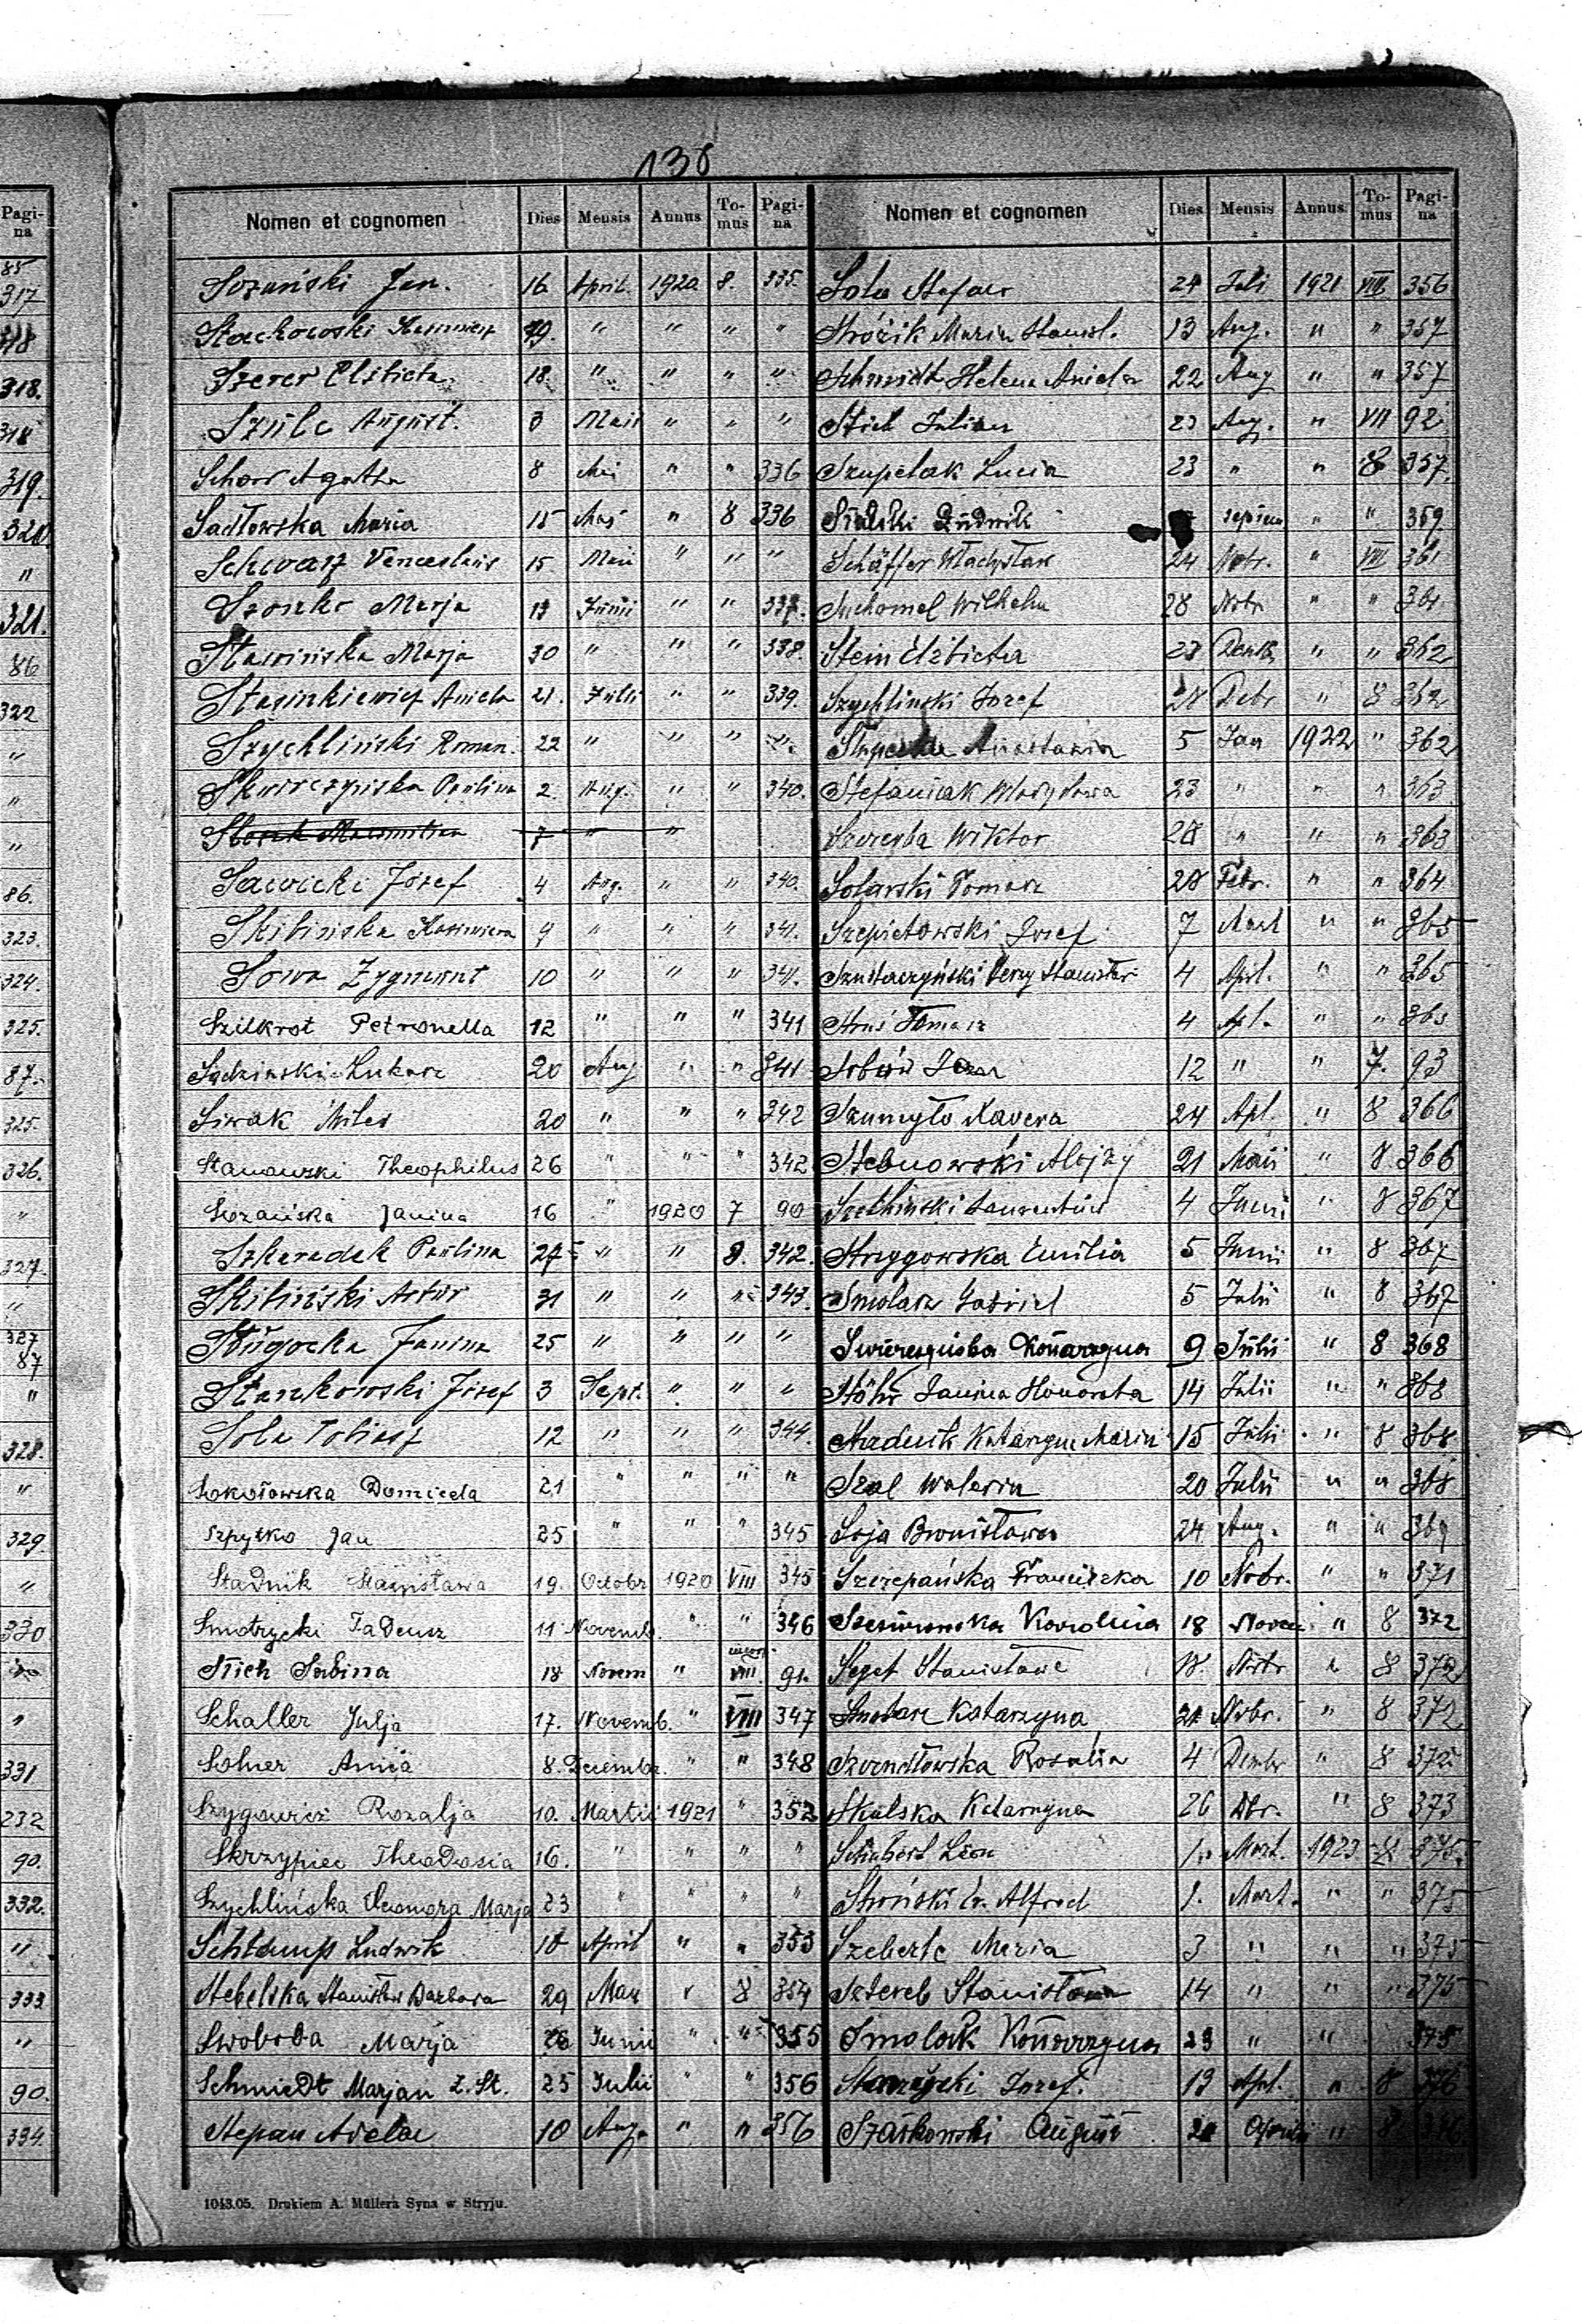 136
Pagi-
na
85
317
318
318.
318
319.
320
"
321.
86
322
"
"
"
86.
323.
324.
325.
87.
325.
326.
"
327.
"
327
87
"
328.
"
329.
"
330
"
331
232
90.
332.
"
333
"
90.
334.
Nomen et cognomen Dies Mensis Annus To-mus Pagi-na
Sozański Jan. 16 April. 1920 8. 335.
Stachowski Kazimierz 19. " " " "
Szerer Elżbieta 18. " " " "
Szulc August. 3 Maii " " "
Schorr Agatha 8 Mai " " 336
Sadłowska Maria 15 Mai " 8 336
Schwarz Venceslaus 15 Maii " " "
Szonko Marja 13 Junii " " 337.
Sławińska Marja 30 " " " 338.
Stasinkiewicz Aniela 21. Julii " " 339.
Szychliński Roman. 22 " " " "
Skwirczyńska Paulina 2. Aug. " " 340.
7 " "
Sawicki Józef 4 Aug. " " 340.
Skibińska Kazimiera 9 " " " 341.
Sowa Zygmunt 10 " " " 341.
Szilkrot Petronella 12 " " " 341
Sądzinski Lukasz 20 Aug " " 341
Siwak 20 " " " 342
Stanowski Theophilus 26 " " " 342
Sozańska Janina 16 " 1920 7 90
Szkaradek Paulina 27 " " 8. 342.
Skibiński Artur 31 " " " 343.
Sługocka Janina 25 " " " "
Stankowski Józef 3 Sept. " " "
Sola Tobiasz 12 " " " 344.
Sokołowska Domicela 21 " " " "
Szpytko Jan 25 " " " 345
Stadnik Stanisława 19. Octobr 1920 VIII 345
Smotrycki Tadeusz 11 Novemb. " " 346
Stich Sabina 18 Novem " VIII. 91.
Schaller Julja 17. Novemb. " VIII 347
Solner Anna 8. Decembr. " " 348
Szygowicz Rozalja 10. Martii 1921 " 352
Skrzypiec Theodozia 16. " " " "
Szychlińska Eleonora Marja 23 " " " "
Ludwik 18 April " " 353
Stebelska Stanisław Barbara 29 Mar " 8 354
Swoboda Marja 26 Junii " " 355
Schmiedt Marjan Z. St. 25 Julii " " 356
Stepan Adela 10 Aug. " " 356
Nomen et cognomen Dies Mensis Annus To-mus Pagi-na
Sola Stefan 24 Juli 1921 VIII 356
Stróżik Maria Stanisł. 13 Aug. " " 357
Schmidt Helena Aniela 22 Aug " " 357
Stich Julian 23 Aug. " VII 92
Szupelak Lucia 23 " " 8 357
Ludwik " " 359
Schäffer Władysław 24 Nobr. " VIII 361
Suchomel Wilhelm 28 Nobr " " 361
Stein Elżbieta 23 " " 362
Szychlinski Jozef Debr " 8 362
5 Jan 1922 " 362
Stefaniak Władysława 23 " " " 363
Szeremba Wiktor 28 " " " 363
Solarski Tomasz 28 Febr. " " 364
Szepietowski Jozef 7 Mart " " 365
Jerzy Stanisław 4 Apl. " " 365
Tomasz 4 Apl. " " 365
12 " " 7. 93
Szumyło Xavera 24 Apl. " 8 366
Stebnowski Alojzy 21 Maii " 8 366
Laurentius 4 Junii " 8 367
Strzygowska Emilia 5 Junii " 8 367
Smolarz Gabriel 5 Julii " 8 367
Katarzyna 9 Julii " 8 368
Stöhr Janina Honorata 14 Julii " " 368
Stadnik Katarzyna Maria 15 Julii " 8 368
Szal Waleria 20 Julii " " 368
Soja Bronisława 24 Aug. " " 369
Szczepańska Franciszka 10 Nobr. " " 371
Karolina 18 Novem " 8 372
Seget Stanisław 18. Nobr " 8 372
Smolarz Katarzyna 21 Nobr. " 8 372
Rosalia 4 Dembr " 8 372
Skalska Katarzyna 26 Dbr. " 8 373
Schubert Leon 1. Mart. 1923 8 375.
Alfred 1. Mart. " " 375
Szeberle Maria 3 " " " 375
Sztereb Stanisława 14 " " " 375
Smolak Katarzyna 23 " " 375
Jozef. 13 Apl. " 8 376
Szańkowski August Aprilis " 8 376.
1043.05. Drukiem A. Müllera Syna w Stryju.